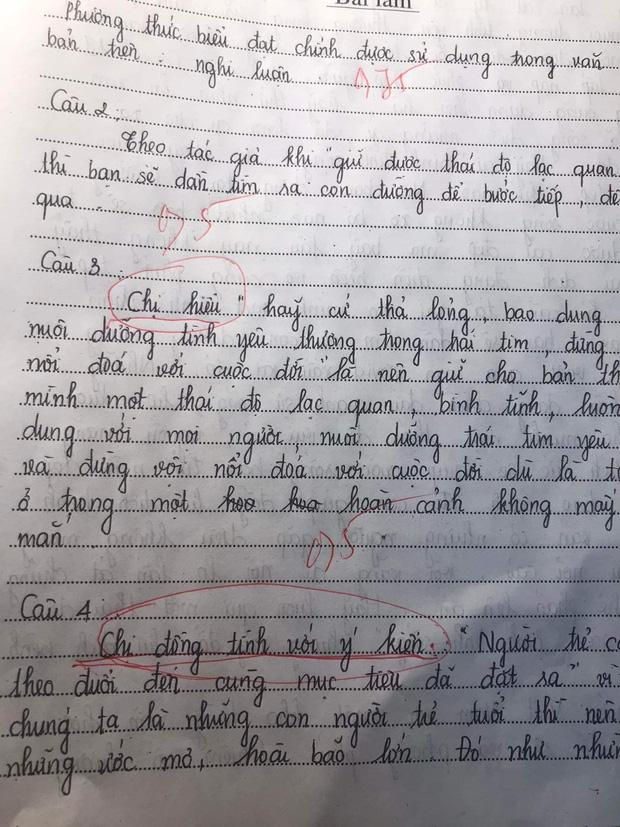 Bài làm
Phương thức biểu đạt chính được sử dụng trong văn
bản trên : nghị luận
0,75
Câu 2 :
Theo tác giả khi "giữ được thái độ lạc quan
thì bạn sẽ dần tìm ra con đường để bước tiếp , để
qua
0,5
Câu 3 :
Chị hiểu " hãy cứ thả lỏng , bao dung
nuôi dưỡng tình yêu thương trong trái tim , đừng
nổi đoá với cuộc đời " là nên giữ cho bản th
mình một thái độ lạc quan , bình tĩnh , luôn
dung với mọi người nuôi dưỡng trái tim yêu
và đừng vội nổi đoá với cuộc đời dù là t
ở trong một hoàn cảnh không may
mắn
0,5
Câu 4 :
Chị đồng tình với ý kiến : " Người trẻ c
theo đuổi đến cùng mục tiêu đã đặt ra " vì
chúng ta là những con người trẻ tuổi thì nên
những ước mơ , hoài bão lớn . Đó như nhữn